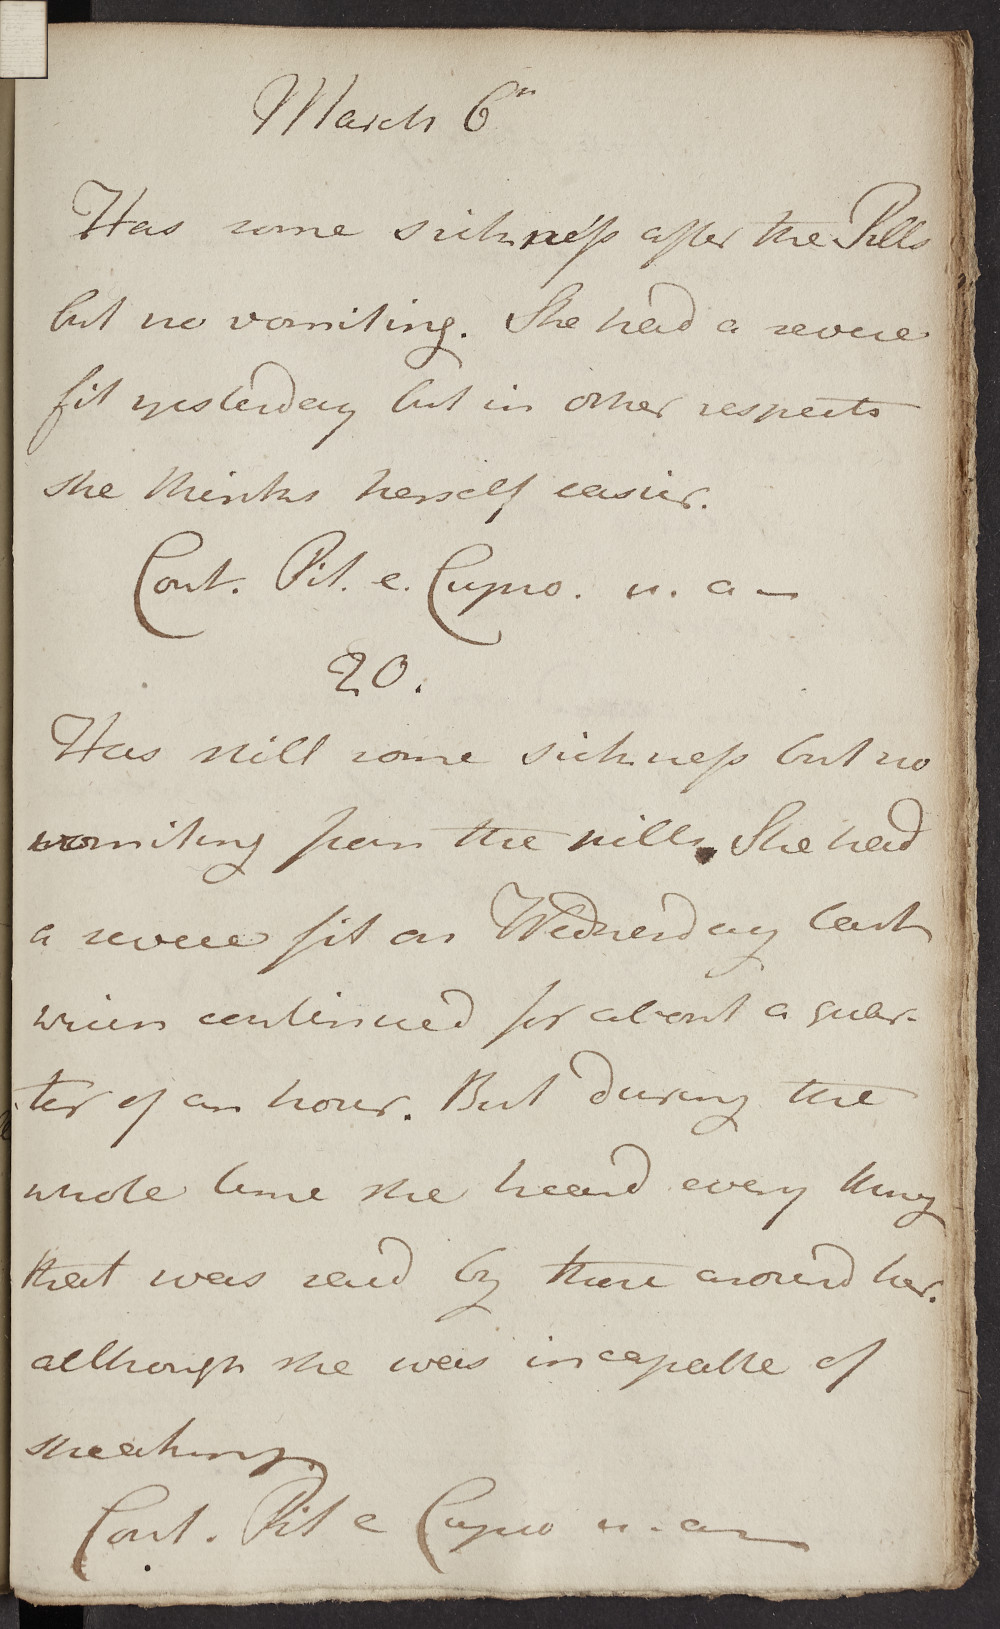 March 6th
Has some sickness after the Pills
but no vomiting. She had a severe
fit yesterday but in other respects
she thinks herself easier.
Cont. Pil. e. Cupro. u. a
20.
Has still some sickness but no
vomiting from the pills. She had
a severe fit on Wednesday last
which continued for about a quar-
ter of an hour. But during the
whole time she heard every thing
that was said by those around her.
although she was incapable of
speaking.
Cont. Pil e Cupro u. a